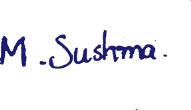 M. Sushma.